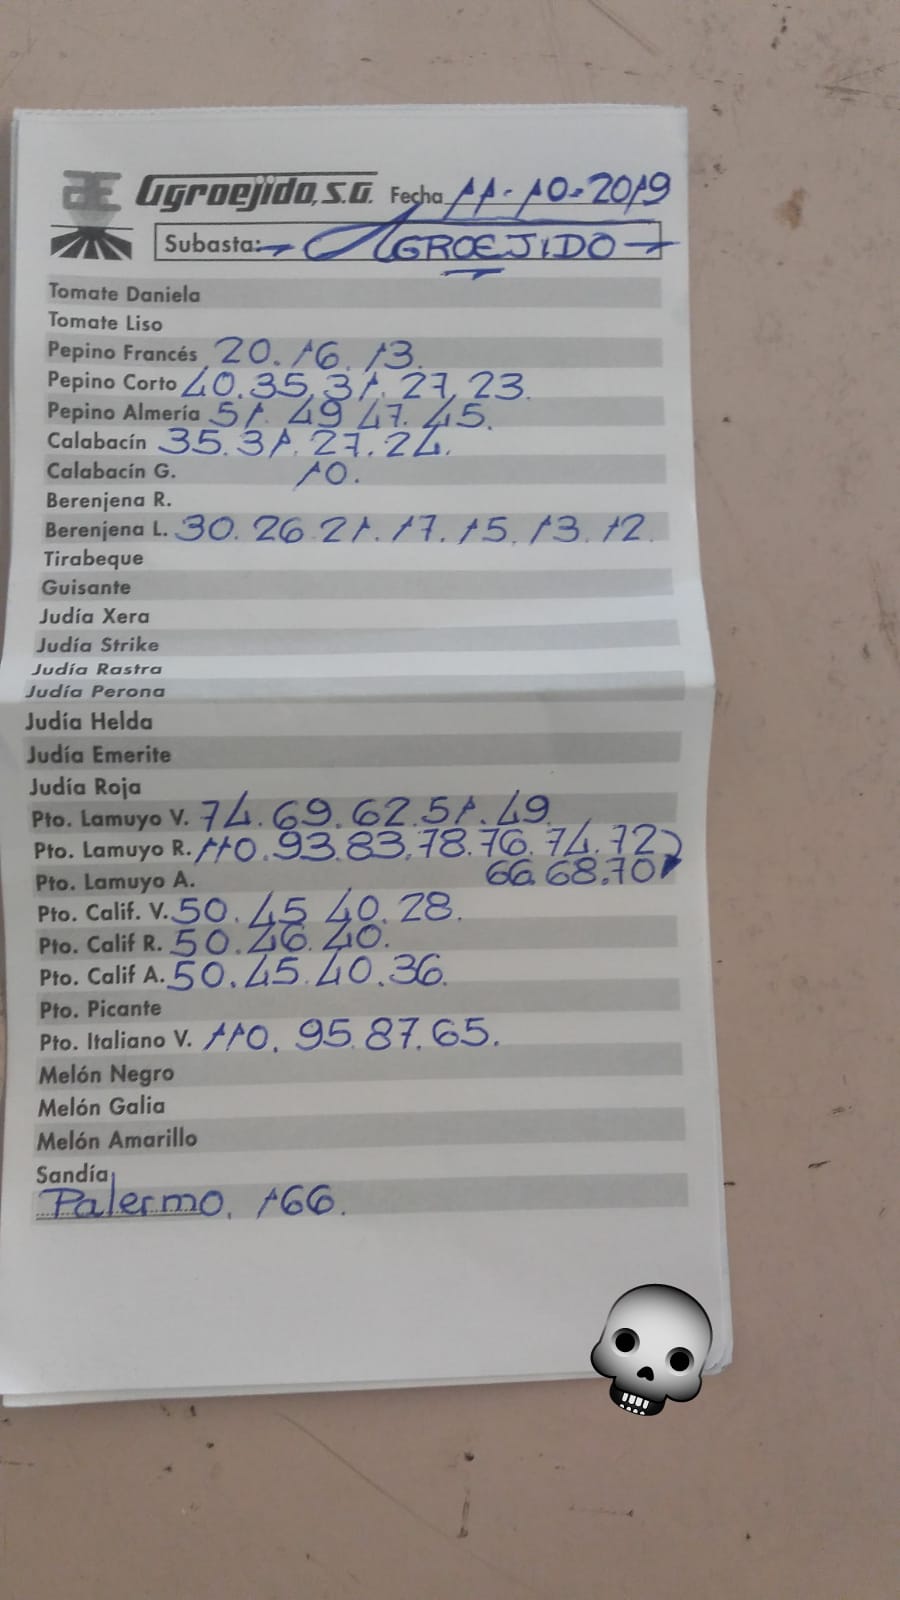 Agroejido, S.A. Fecha 11-10-2019
Subasta: AGROEJIDO
Tomate Daniela
Tomate Liso
Pepino Francés 20. 16. 13.
Pepino Corto 40. 35. 31. 27. 23.
Pepino Almería 51. 49 47. 45.
Calabacín 35. 31. 27. 24.
Calabacín G. 10.
Berenjena R.
Berenjena L. 30. 26. 21. 17. 15. 13. 12.
Tirabeque
Guisante
Judía Xera
Judía Strike
Judía Rastra
Judía Perona
Judía Helda
Judía Emerite
Judía Roja
Pto. Lamuyo V. 74. 69. 62. 51. 49
Pto. Lamuyo R. 110. 93. 83. 78. 76. 74. 72
Pto. Lamuyo A. 66. 68. 70
Pto. Calif. V. 50. 45 40. 28.
Pto. Calif R. 50. 46. 40.
Pto. Calif A. 50. 45. 40. 36.
Pto. Picante
Pto. Italiano V. 110. 95. 87. 65.
Melón Negro
Melón Galia
Melón Amarillo
Sandía
Palermo. 166.